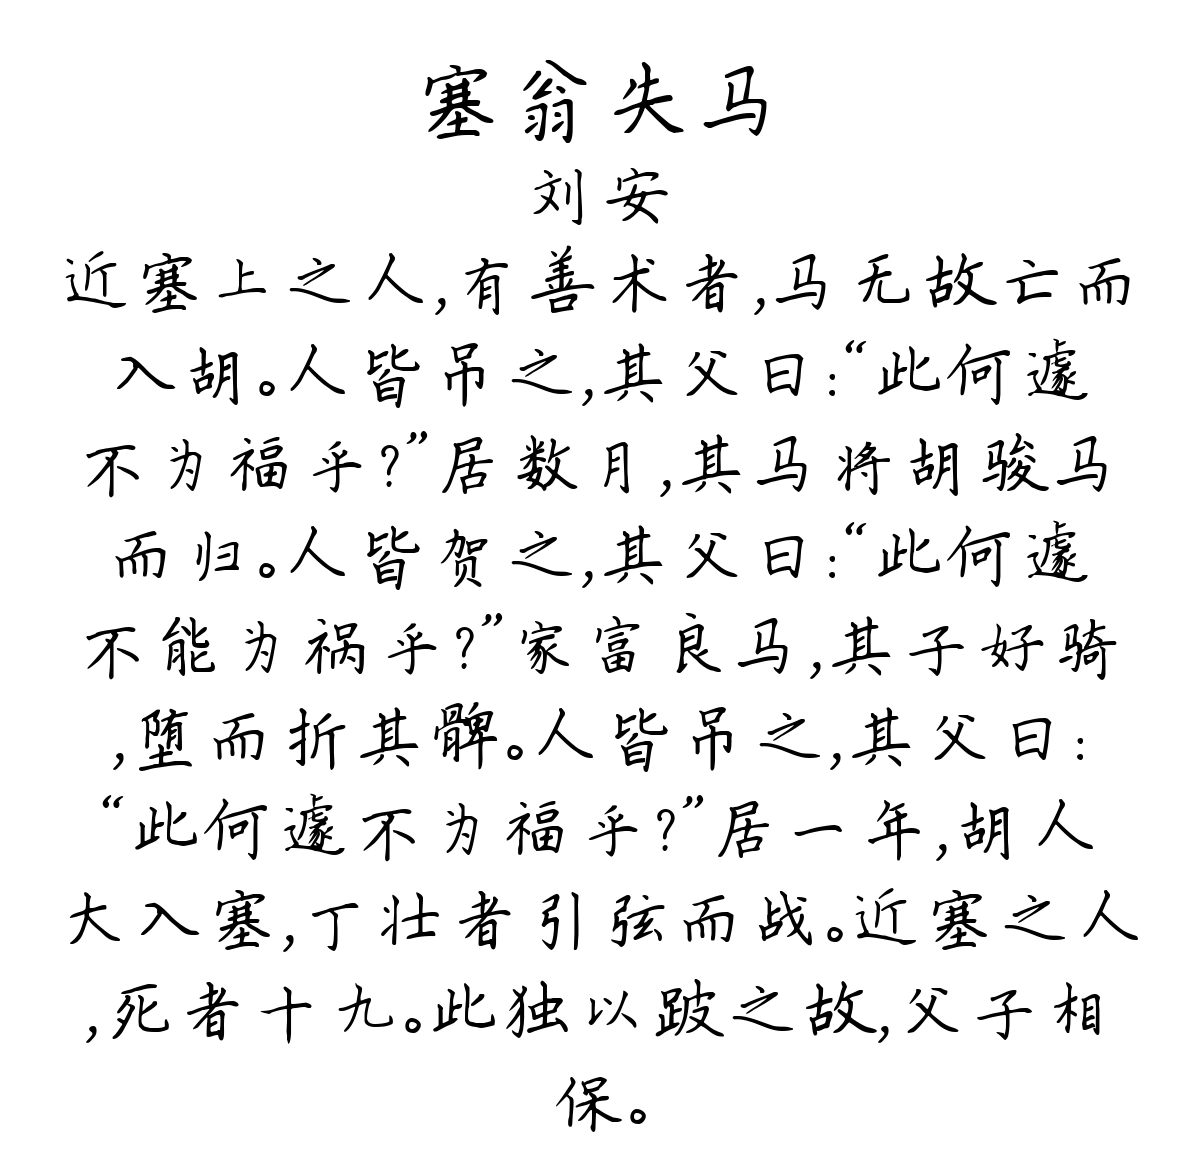 塞翁失马
刘安
近塞上之人,有善术者,马无故亡而
入胡。人皆吊之,其父曰:“此何遽
不为福乎?”居数月,其马将胡骏马
而归。人皆贺之,其父曰:“此何遽
不能为祸乎?”家富良马,其子好骑
,堕而折其髀。人皆吊之,其父曰:
“此何遽不为福乎?”居一年,胡人
大入塞,丁壮者引弦而战。近塞之人
,死者十九。此独以跛之故,父子相
保。